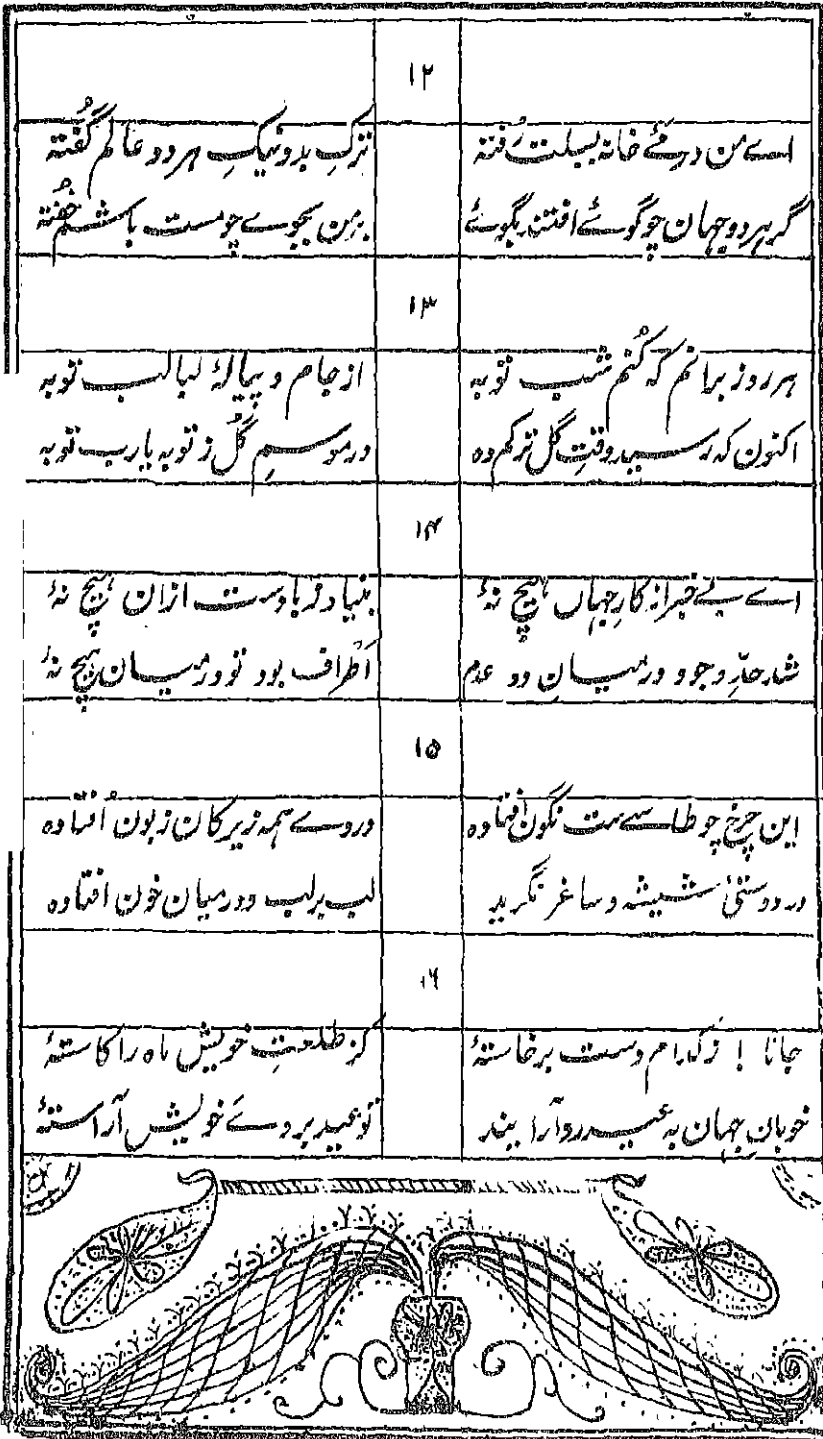 ۱۲
اے من درِ مَے خانہ بسبلت رُفتہ ترکِ بد و نیکِ ہر دو عالم گُفتہ
گر ہر دو جہان چو گوئے افتند بگوئے برمن بجوے چو مست باشم خُفتہ
۱۳
ہر روز برانم کہ کُنم شب توبہ از جام و پیالۂ لبالب توبہ
اکنون کہ رسید وقتِ گل ترکم دہ در موسمِ گُل ز توبہ یارب توبہ
۱۴
اے بے خبر از کارِ جہاں ہیچ نۂ بنیاد بر باد ست ازان ہیچ نۂ
شد حدِّ وجود در میانِ دو عدم اَطراف بود تو در میان ہیچ نۂ
۱۵
این چرخ چو طاسے ست نگون افتادہ دروے ہمہ زیرکان زبون اُفتادہ
در دوستیٔ شیشہ و ساغر نگرید لب بر لب و درمیان خون افتادہ
۱۶
جانا ! ز کدام دست برخاستۂ کز طلعتِ خویش ماہ را کاستۂ
خوبانِ جہان بہ عید رو آرا یند تو عید بروے خویش آراستۂ